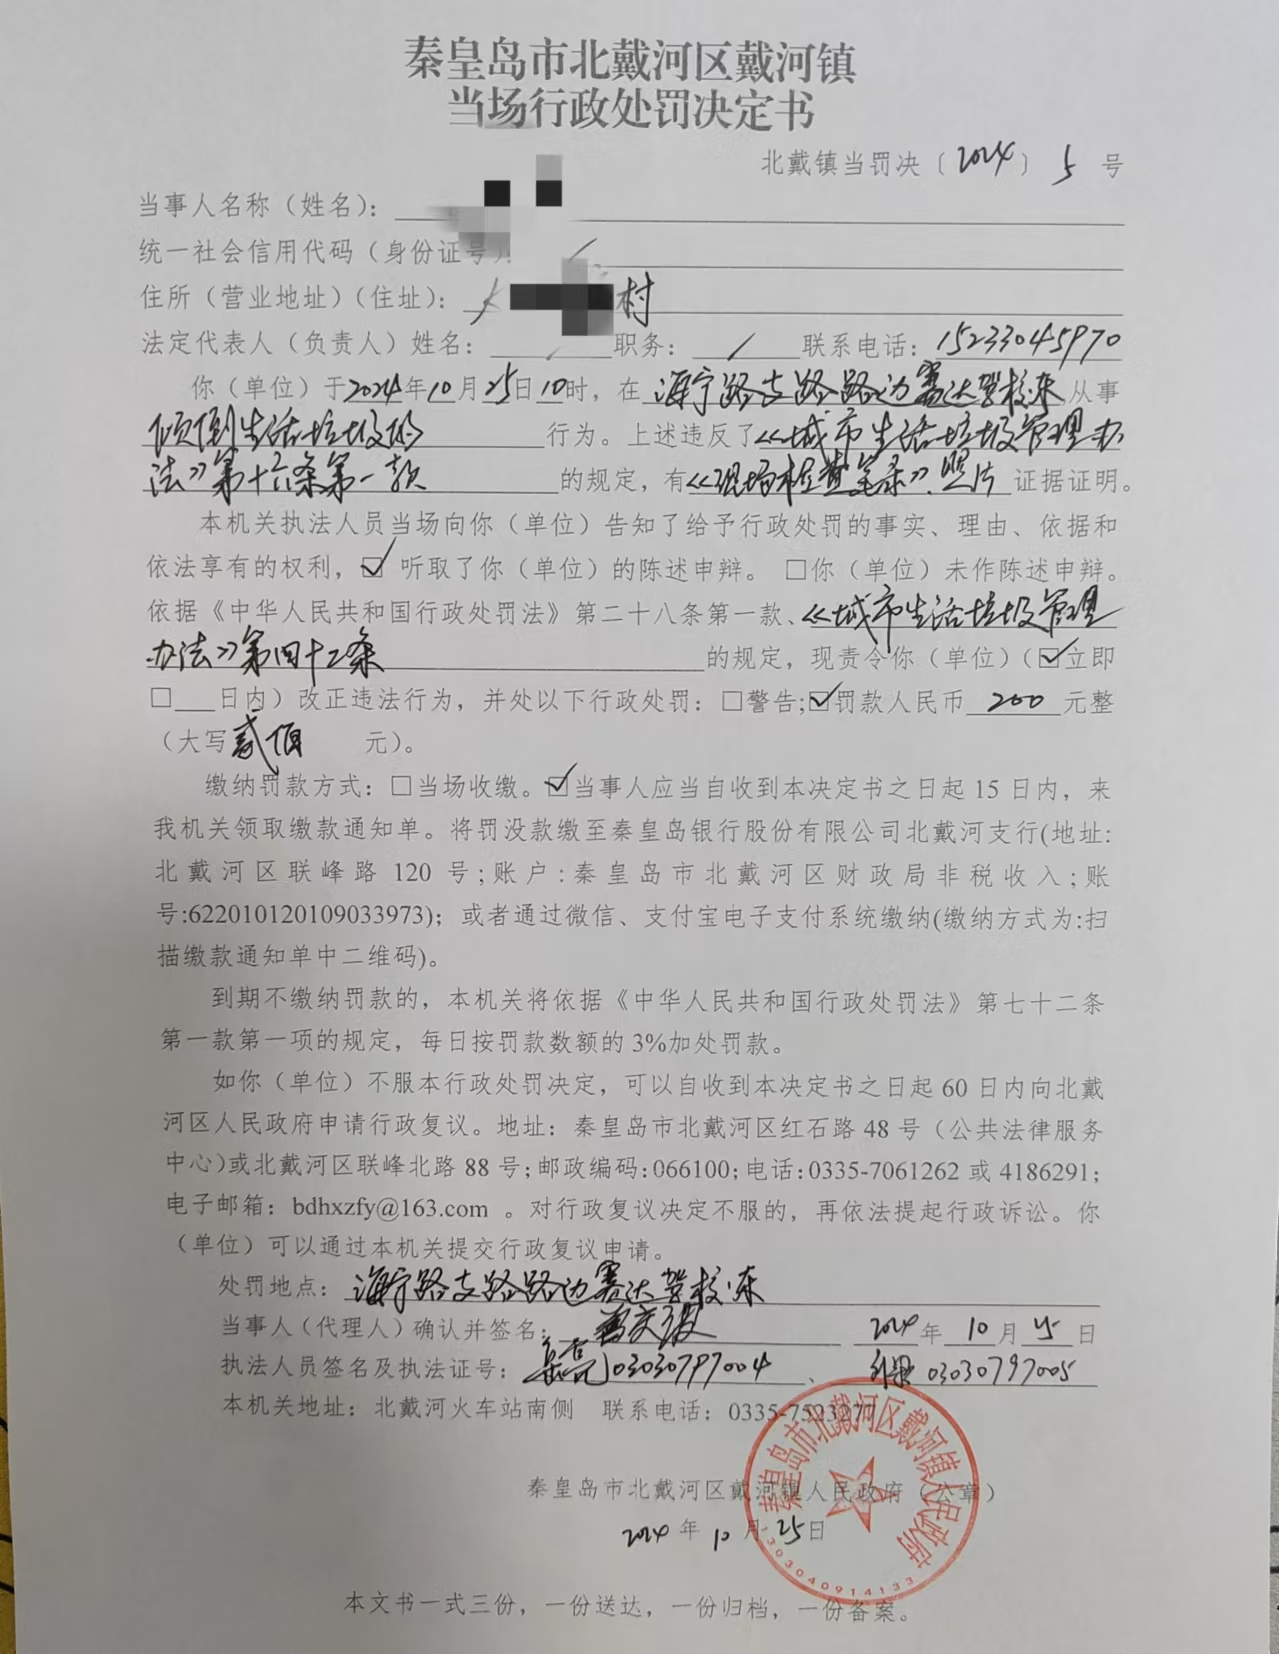 秦皇岛市北戴河区戴河镇
当场行政处罚决定书
北戴镇当罚决〔2024〕5号
当事人名称（姓名）：
统一社会信用代码（身份证号）：/
住所（营业地址）（住址）：村
法定代表人（负责人）姓名：/职务：/联系电话：15233045970
你（单位）于2024年10月25日10时，在海宁路支路路边赛达驾校东从事
倾倒生活垃圾的行为。上述违反了《城市生活垃圾管理办
法》第十六条第一款的规定，有《现场检查笔录》、照片证据证明。
本机关执法人员当场向你（单位）告知了给予行政处罚的事实、理由、依据和
依法享有的权利，☑听取了你（单位）的陈述申辩。□你（单位）未作陈述申辩。
依据《中华人民共和国行政处罚法》第二十八条第一款、《城市生活垃圾管理
办法》第四十二条的规定，现责令你（单位）（☑立即
□___日内）改正违法行为，并处以下行政处罚：□警告;☑罚款人民币200元整
（大写贰佰 元）。
缴纳罚款方式：□当场收缴。☑当事人应当自收到本决定书之日起15日内，来
我机关领取缴款通知单。将罚没款缴至秦皇岛银行股份有限公司北戴河支行(地址:
北戴河区联峰路120号;账户:秦皇岛市北戴河区财政局非税收入;账
号:622010120109033973)；或者通过微信、支付宝电子支付系统缴纳(缴纳方式为:扫
描缴款通知单中二维码)。
到期不缴纳罚款的，本机关将依据《中华人民共和国行政处罚法》第七十二条
第一款第一项的规定，每日按罚款数额的3%加处罚款。
如你（单位）不服本行政处罚决定，可以自收到本决定书之日起60日内向北戴
河区人民政府申请行政复议。地址：秦皇岛市北戴河区红石路48号（公共法律服务
中心)或北戴河区联峰北路88号;邮政编码:066100;电话:0335-7061262或4186291;
电子邮箱：bdhxzfy@163.com 。对行政复议决定不服的，再依法提起行政诉讼。你
（单位）可以通过本机关提交行政复议申请。
处罚地点：海宁路支路路边赛达驾校东
当事人（代理人）确认并签名： 2024年10月25日
执法人员签名及执法证号：03030797004、03030797005
本机关地址：北戴河火车站南侧 联系电话：0335-7523277
秦皇岛市北戴河区戴河镇人民政府（公章）
2024年10月25日
秦皇岛市北戴河区戴河镇人民政府
本文书一式三份，一份送达，一份归档，一份备案。